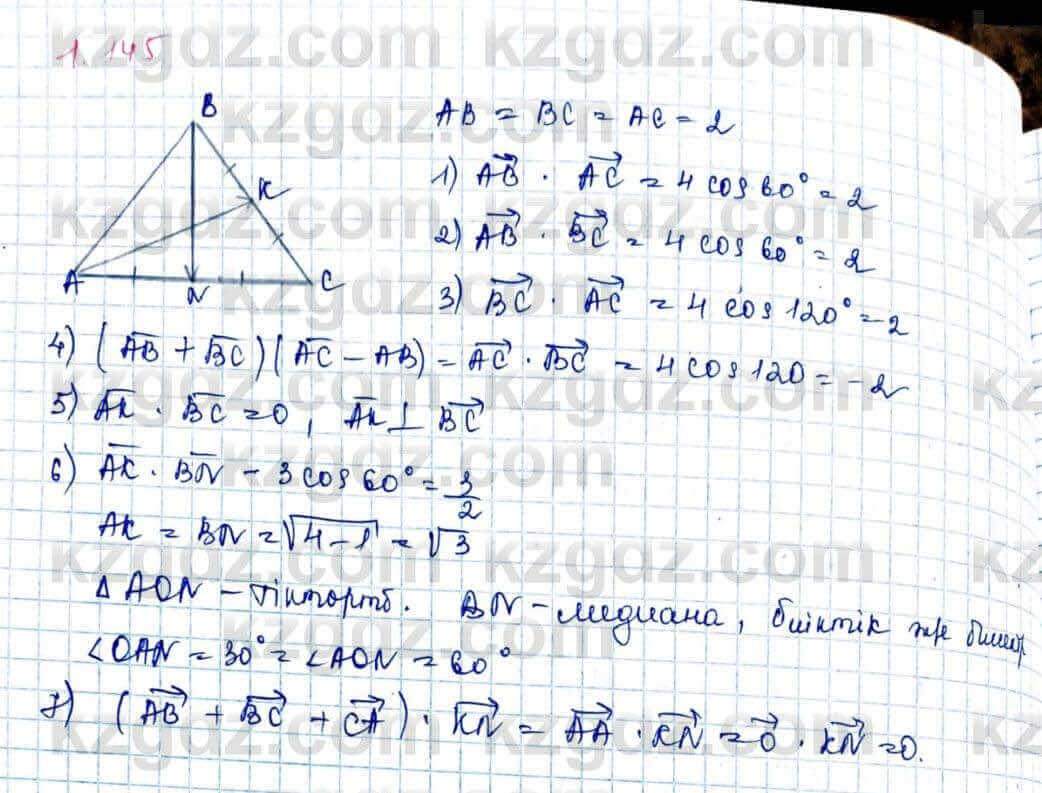 1.145
B
K
A
N
C
AB = BC = AC = 2
1) AB · AC = 4 cos 60° = 2
2) AB · BC = 4 cos 60° = 2
3) BC · AC = 4 cos 120° = -2
4) (AB + BC)(AC - AB) = AC · BC = 4 cos 120 = -2
5) AK · BC = 0, AK ⊥ BC
6) AK · BN - 3 cos 60° = 3/2
AK = BN = √4-1 = √3
Δ AON - тікторт. BN - медиана, биіктік және
∠OAN = 30° = ∠AON = 60°
7) (AB + BC + CA) · KN = AA · KN = 0 · KN = 0.
kzgdz.com